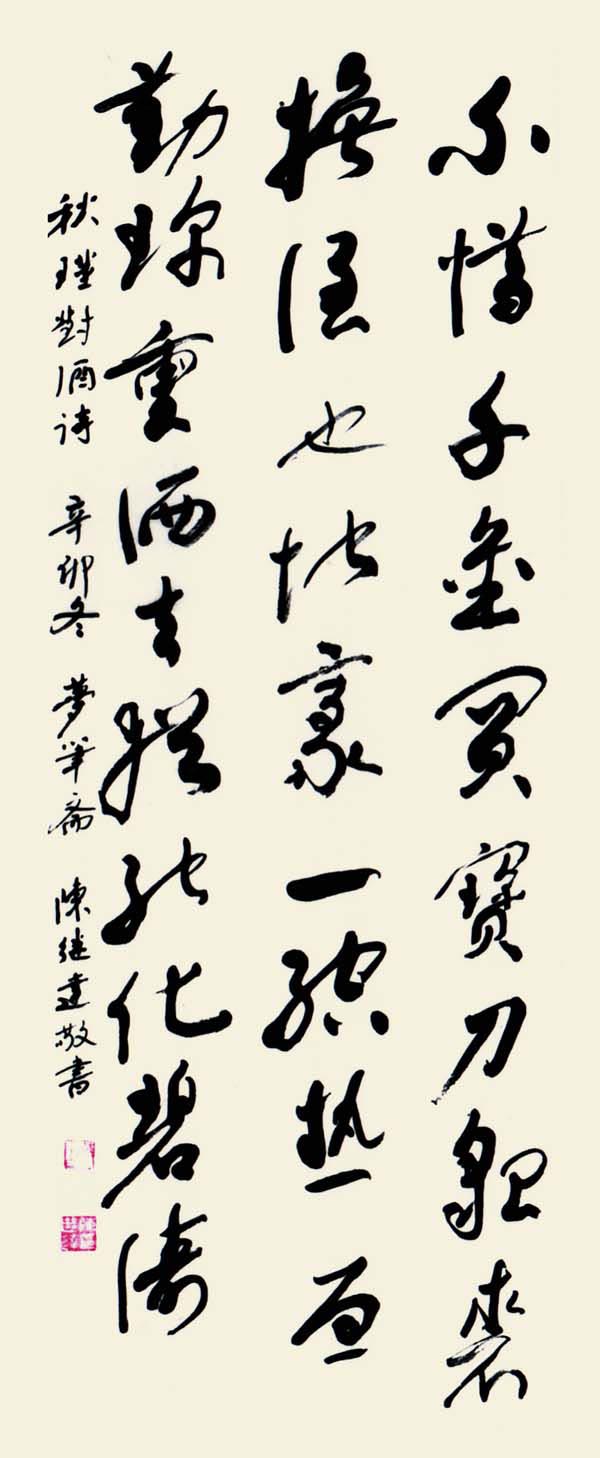 不惜千金買寶刀貂裘
換酒也堪豪一腔熱血
勤珍重洒去猶能化碧濤
秋瑾對酒詩 辛卯冬 夢筆斋 陳继達敬書